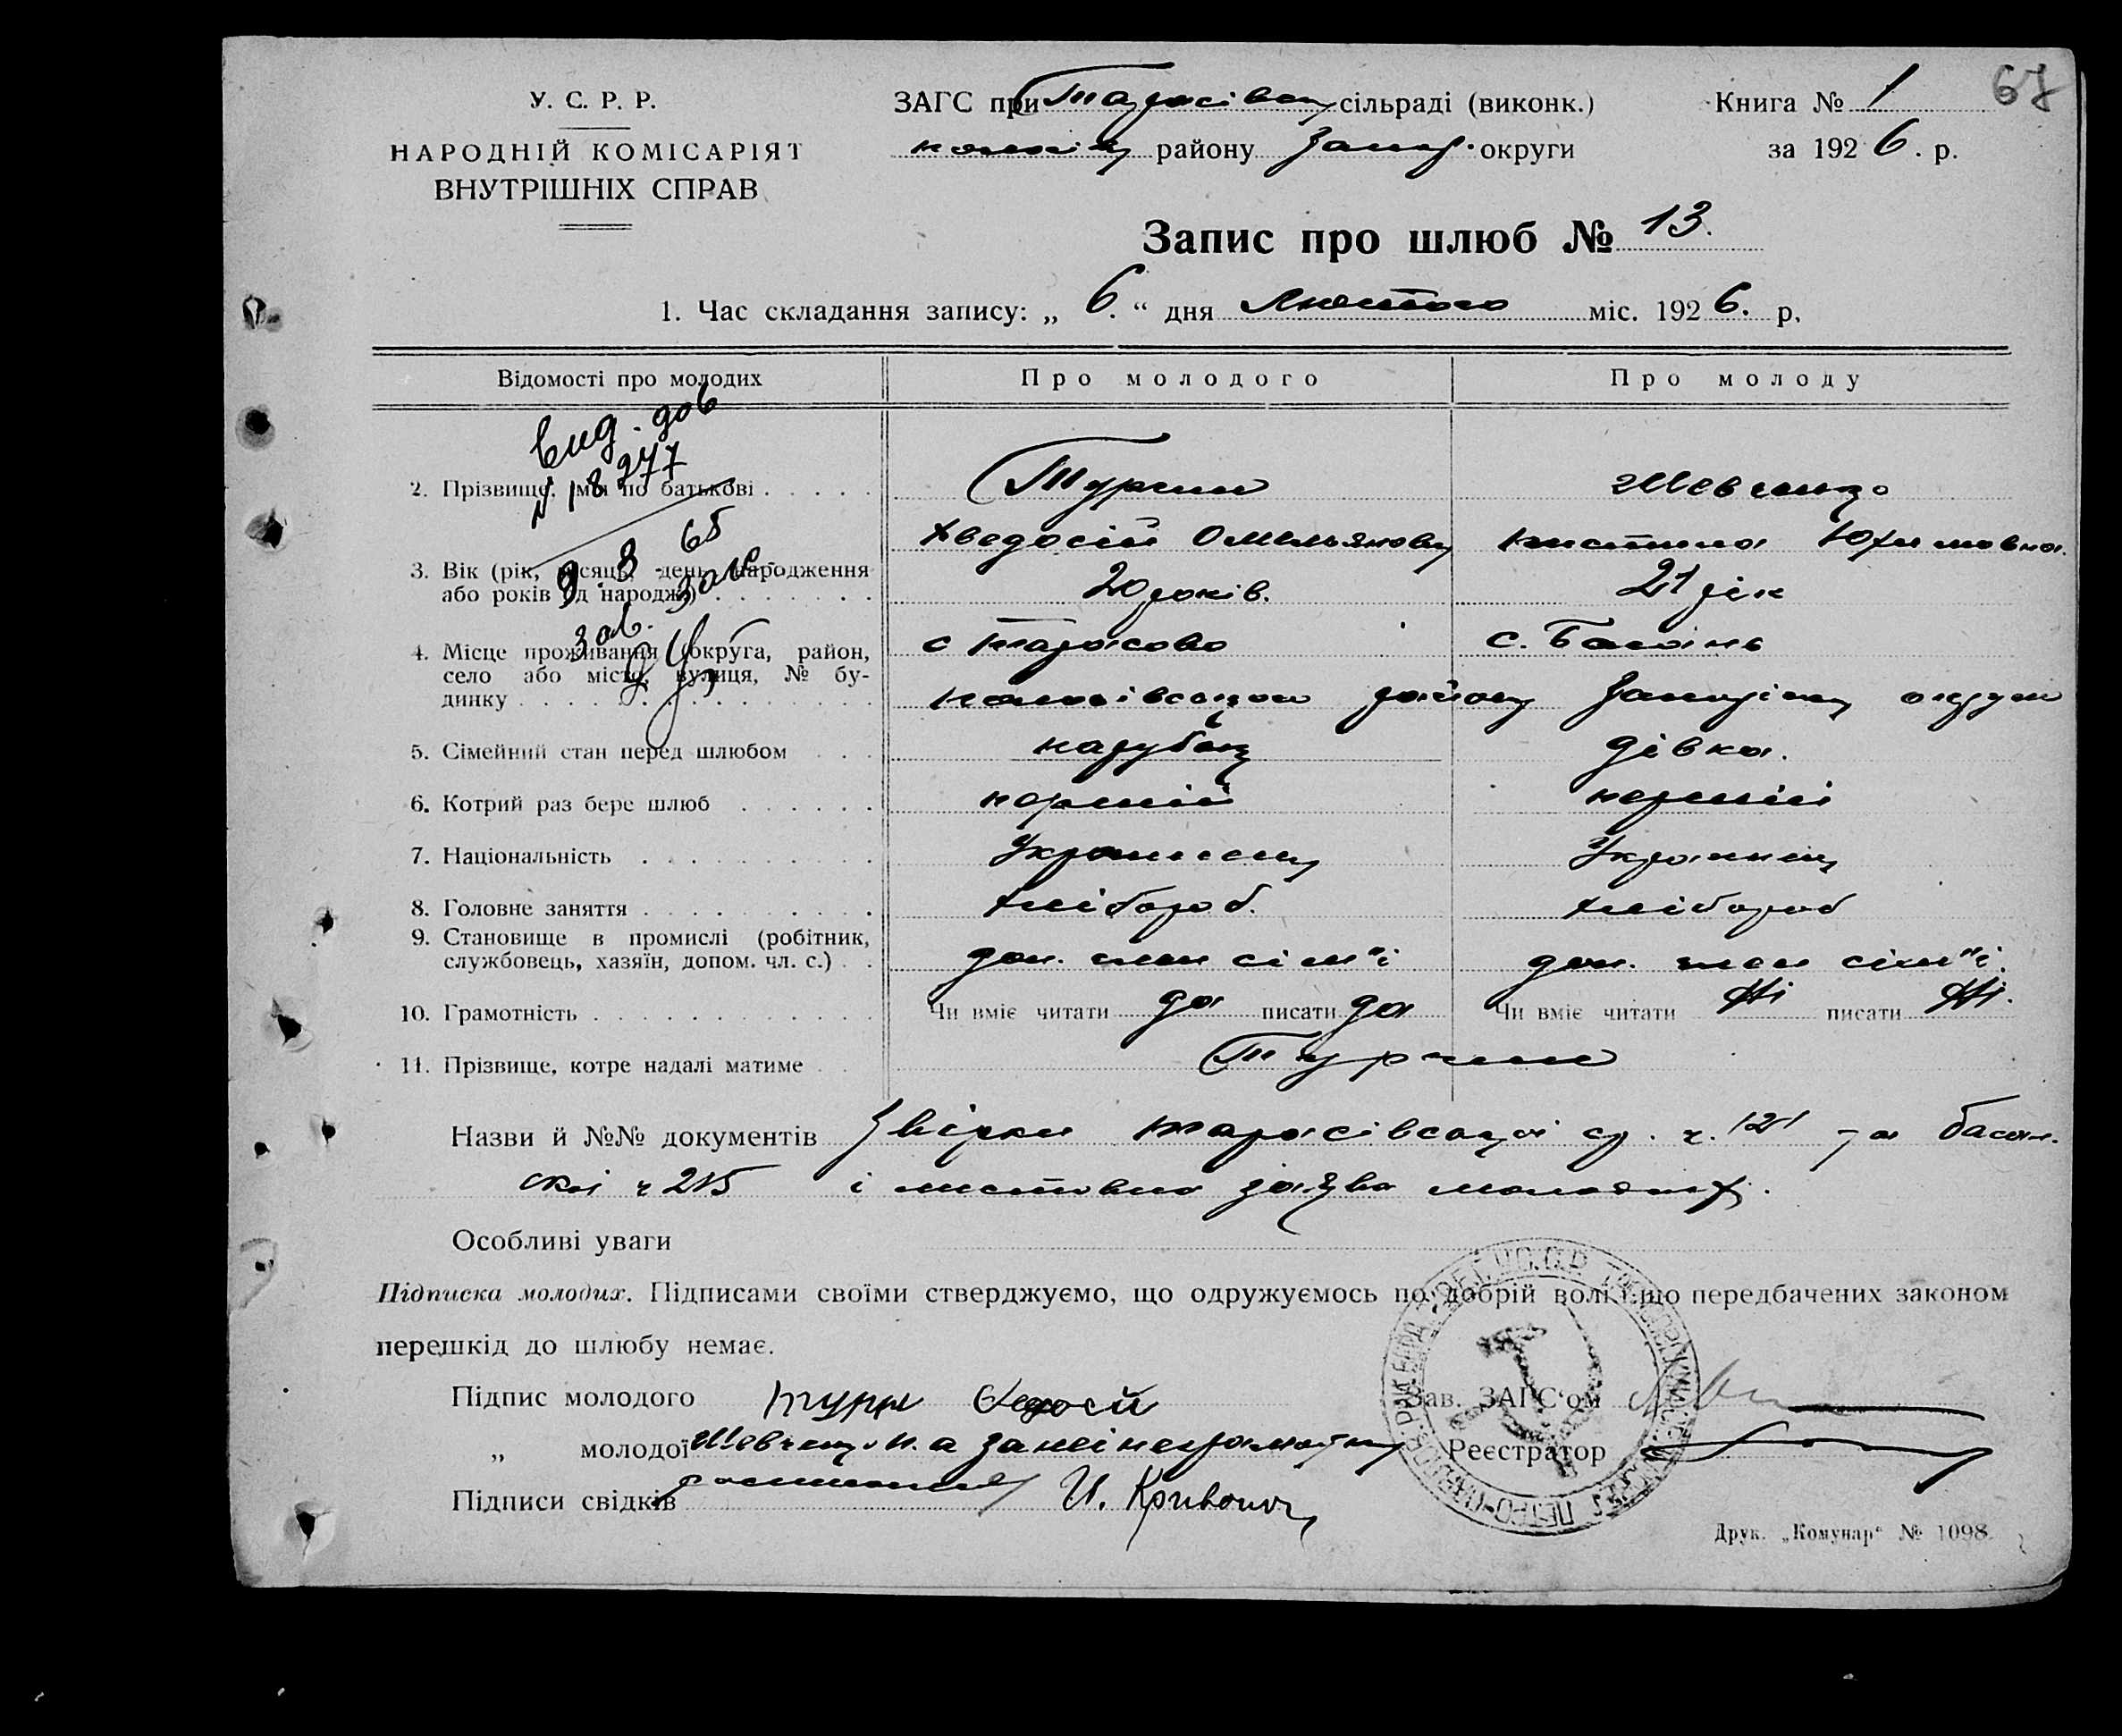 67
У. С. Р. Р.
НАРОДНІЙ КОМІСАРІЯТ
ВНУТРІШНІХ СПРАВ
ЗАГС при Тарасівск сільраді (виконк.)
району Запор. округи
Книга № 1
за 1926. р.
Запис про шлюб № 13.
1. Час складання запису: „ 6. “ дня Лютого міс. 1926. р.
Відомості про молодих
Про молодого
Про молоду
Вид. дов
№ 18277
9. 8 65
2. Прізвище, імя по батькові
Турчин
Шевченко
Хведосій Омельянович
Юхимовна.
3. Вік (рік, місяць, день народження
або років від народж.)
20 років.
21 рік
4. Місце проживання (округа, район,
село або місто, вулиця, № бу-
динку
с Тарасово
с. Басань
району Запоріжск округи
5. Сімейний стан перед шлюбом
парубок
дівка.
6. Котрий раз бере шлюб
перший
перший
7. Національність
Украинець
Украинец
8. Головне заняття
хлібороб.
хлібороб
9. Становище в промислі (робітник,
службовець, хазяїн, допом. чл. с.)
доп. член сім"ї
доп. член сім"ї.
10. Грамотність
Чи вміє читати да писати да
Чи вміє читати Ні писати Ні.
11. Прізвище, котре надалі матиме
Турчин
Назви й №№ документів Звірки тарасівської ср. ч. 121 та басан.
скої ч 215 і заява молодих.
Особливі уваги
Підписка молодих. Підписами своїми стверджуємо, що одружуємось по добрій волі і що передбачених законом
перешкід до шлюбу немає.
Підпис молодого
„ молодої Шевченко а за неї неграмотну
Підписи свідків
И.
Зав. ЗАГС‘ом
Реєстратор
Друк. „Комунар“ № 1098